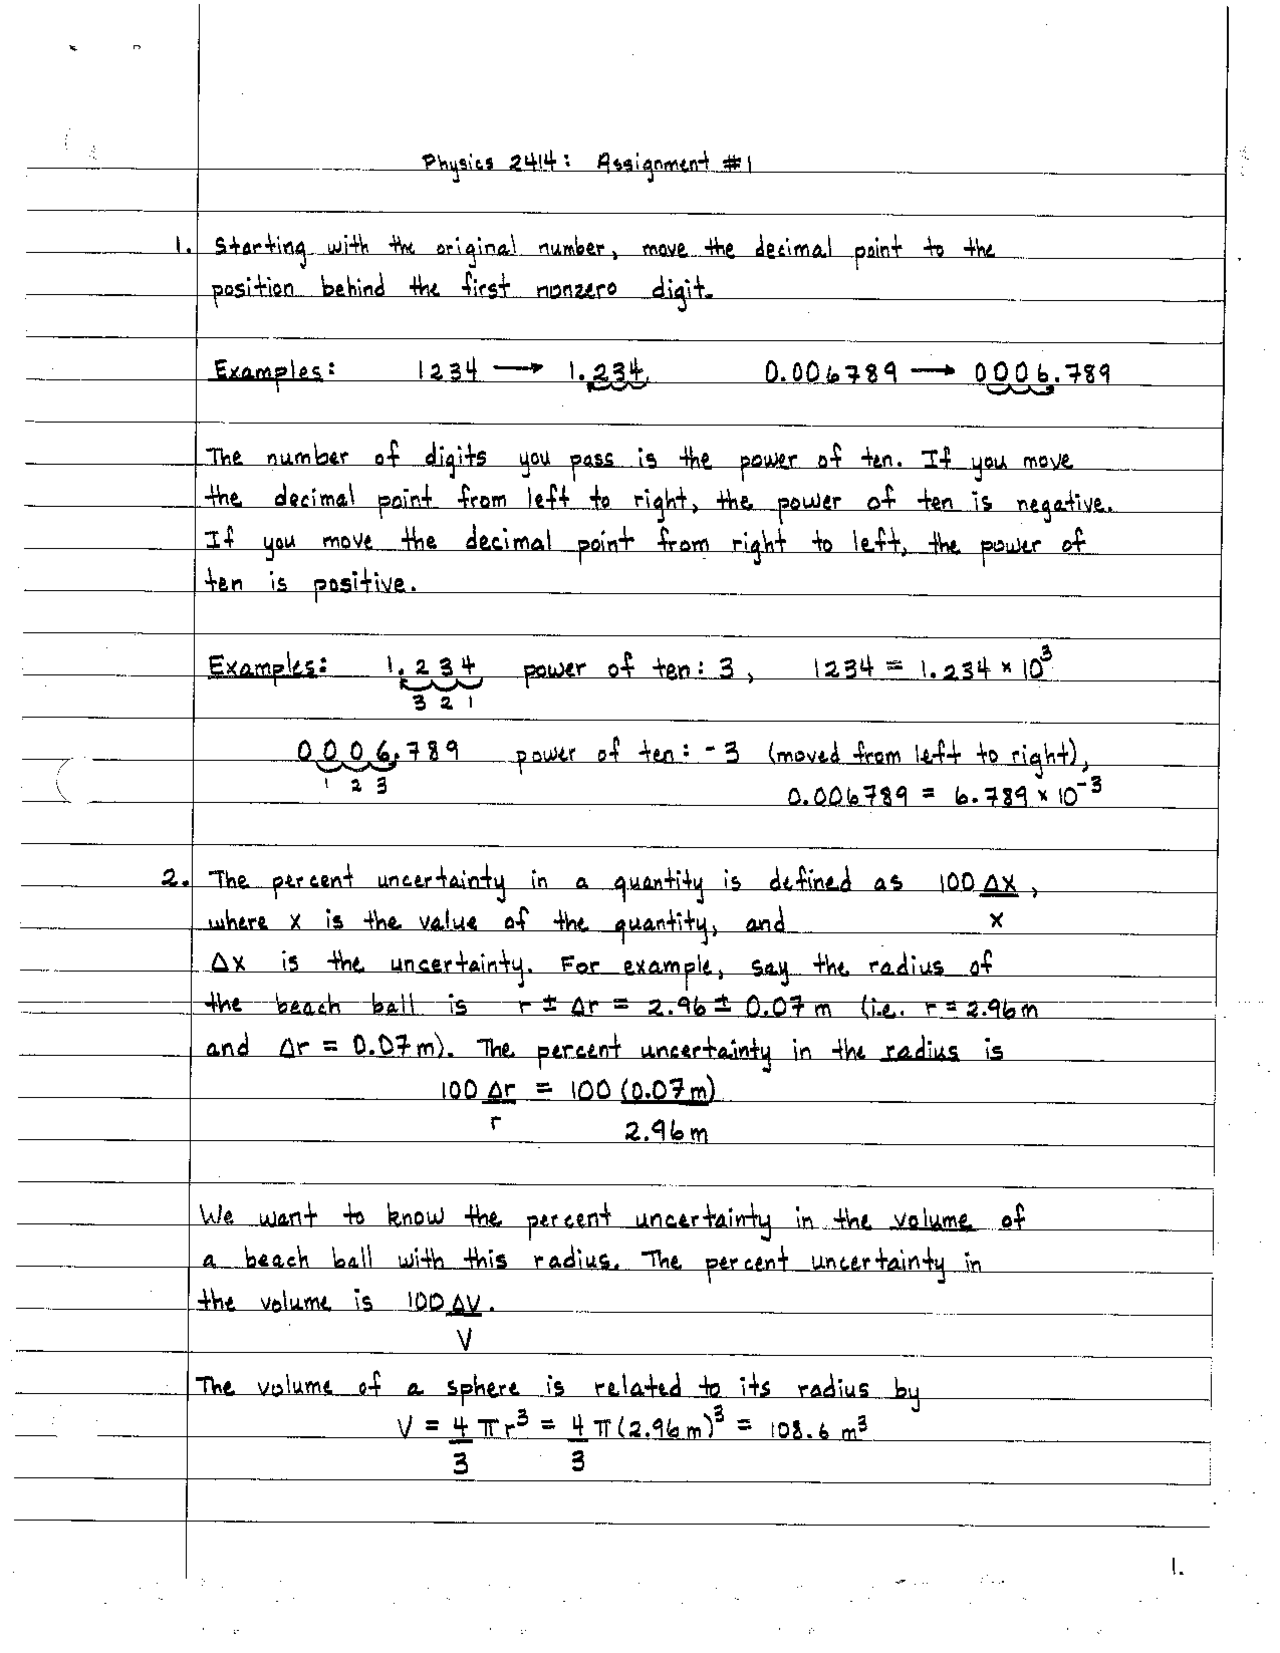 Physics 2414: Assignment #1
1. Starting with the original number, move the decimal point to the
position behind the first nonzero digit.
Examples: 1234 → 1.234 0.006789 → 0006.789
The number of digits you pass is the power of ten. If you move
the decimal point from left to right, the power of ten is negative.
If you move the decimal point from right to left, the power of
ten is positive.
Examples: 1.234 power of ten: 3, 1234 = 1.234 × 10³
3 2 1
0006.789 power of ten: -3 (moved from left to right),
1 2 3 0.006789 = 6.789 × 10⁻³
2. The percent uncertainty in a quantity is defined as 100 Δx,
where x is the value of the quantity, and x
Δx is the uncertainty. For example, say the radius of
the beach ball is r ± Δr = 2.96 ± 0.07 m (i.e. r = 2.96m
and Δr = 0.07m). The percent uncertainty in the radius is
100 Δr = 100 (0.07m)
r 2.96m
We want to know the percent uncertainty in the volume of
a beach ball with this radius. The percent uncertainty in
the volume is 100 ΔV.
V
The volume of a sphere is related to its radius by
V = 4 πr³ = 4 π(2.96m)³ = 108.6 m³
3 3
1.